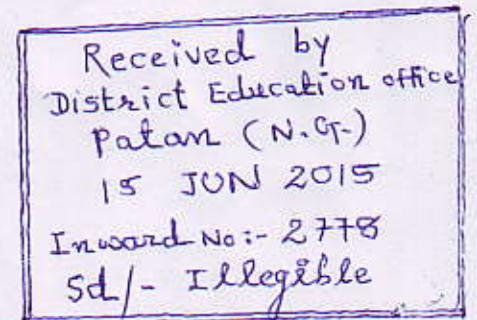 Received by
District Education office
Patan (N.G.)
15 JUN 2015
Inward No:- 2778
Sd/- Illegible